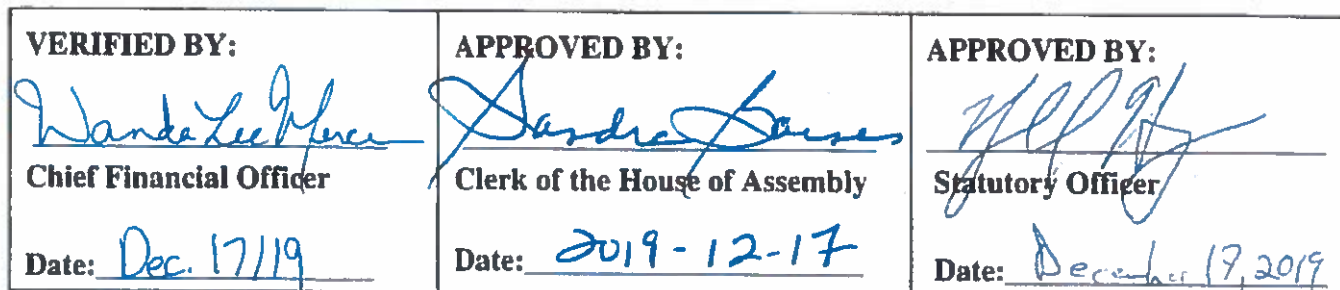 VERIFIED BY:
Wanda Lee Mercer
Chief Financial Officer
Date: Dec. 17/19
APPROVED BY:
Sandra Barnes
Clerk of the House of Assembly
Date: 2019-12-17
APPROVED BY:
Statutory Officer
Date: December 17, 2019